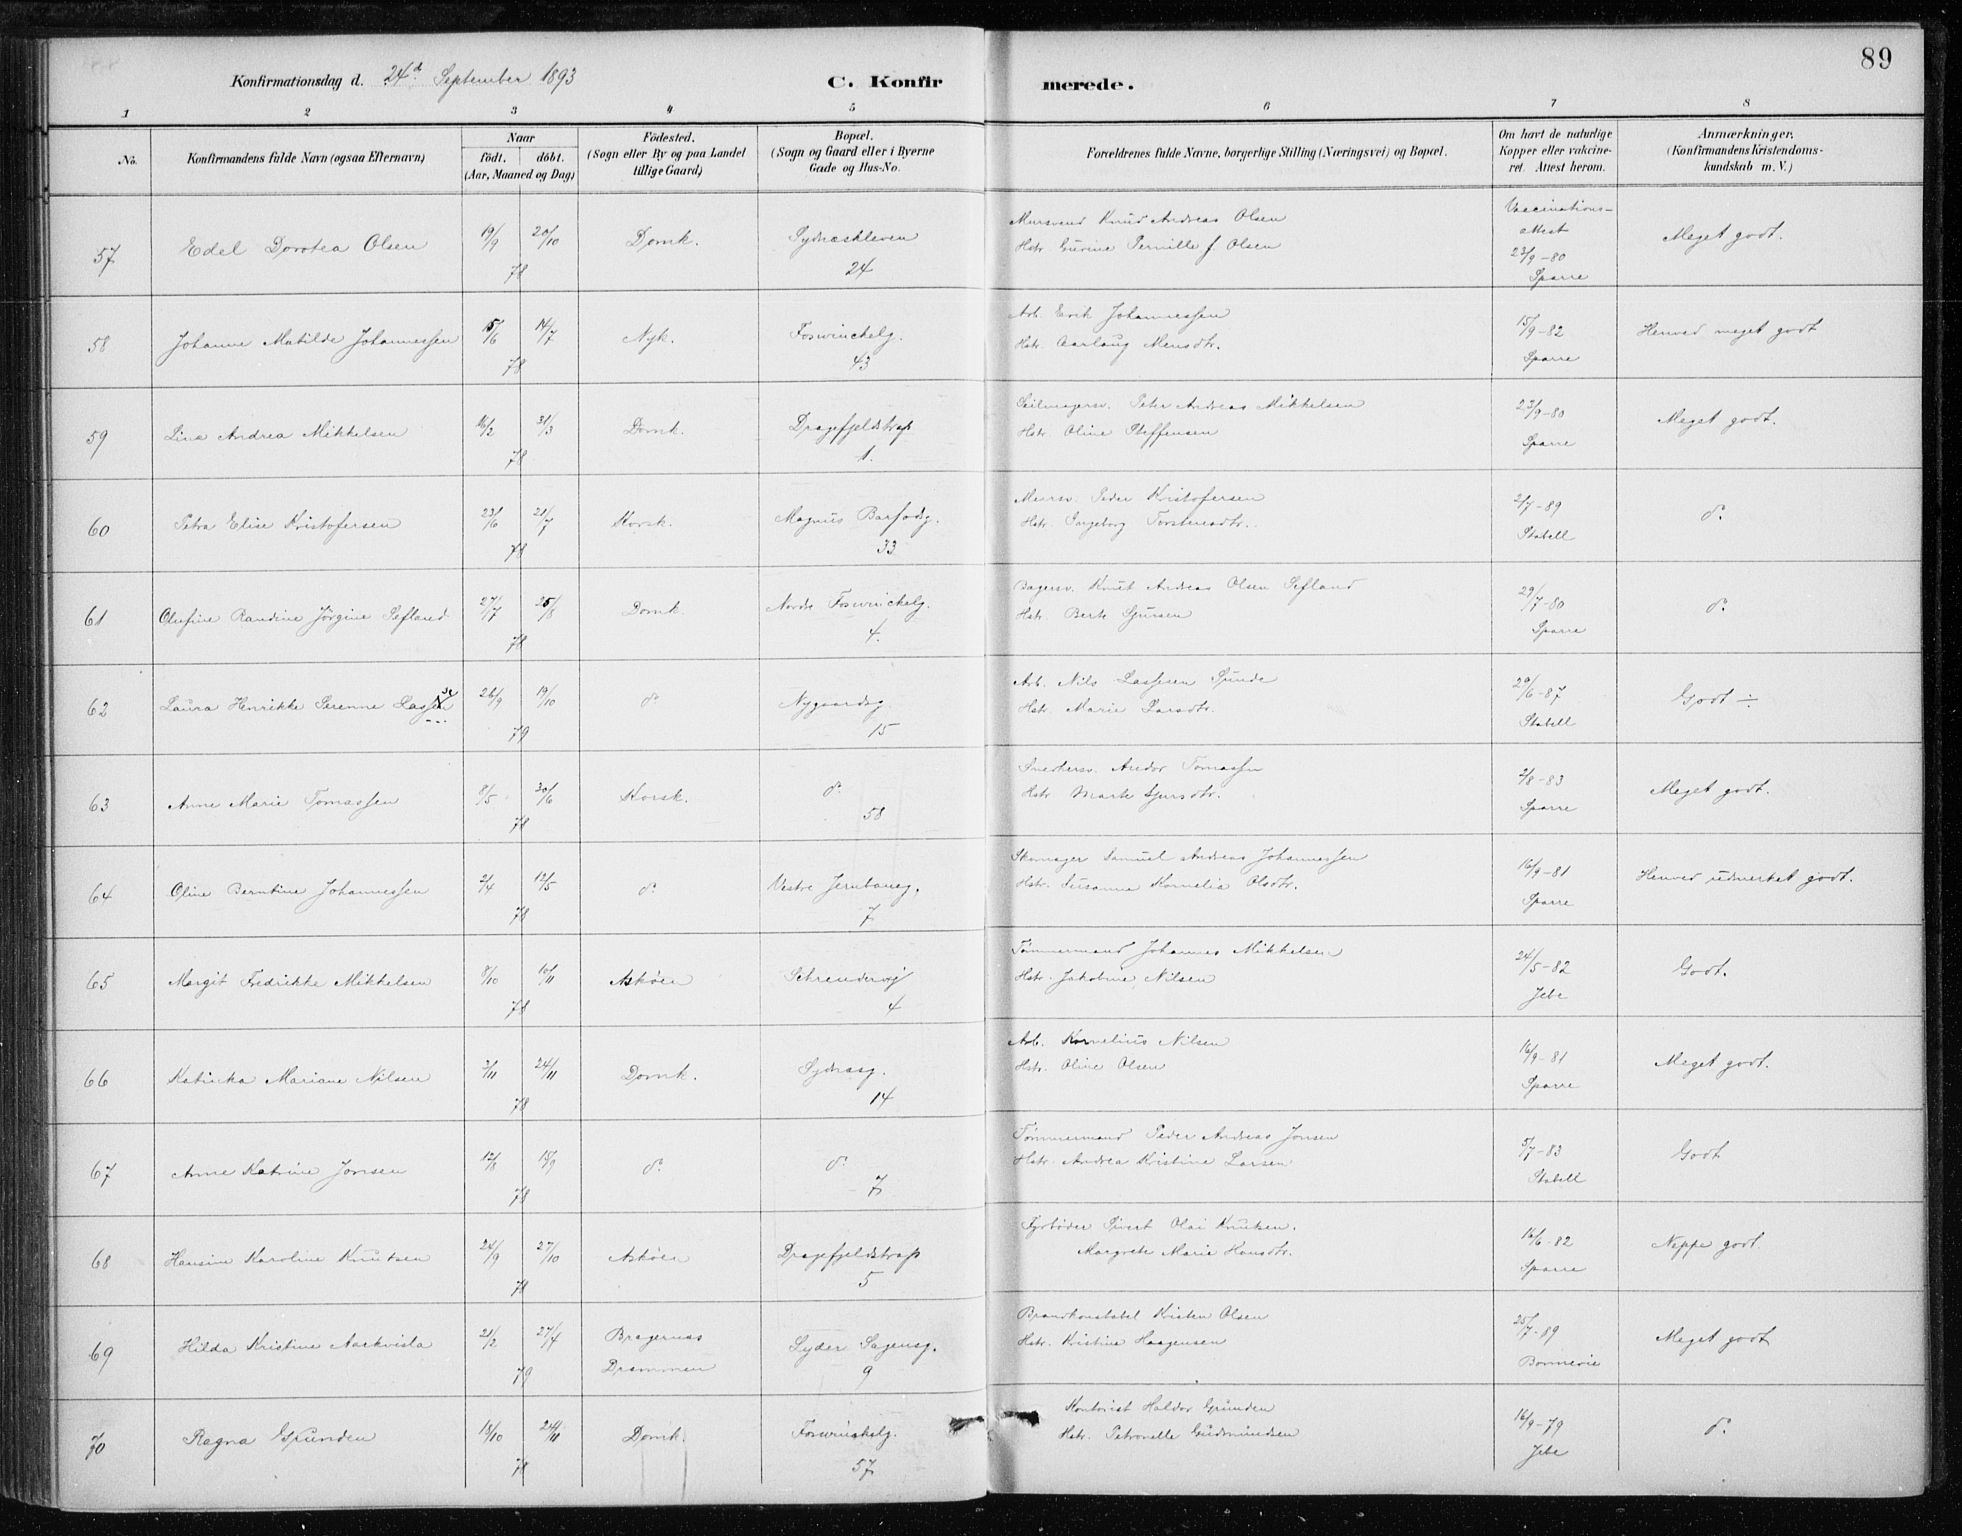 89
Konfirmationsdag d. 24d. September 1893
C. Konfirmerede.
1 2 3 4 5 6 7 8
No.
Konfirmandens fulde Navn (ogsaa Efternavn)
Naar
født. døbt.
(Aar, Maaned og Dag)
Födested.
(Sogn eller By og paa Landet
tillige Gaard)
Bopæl.
(Sogn og Gaard eller i Byerne
Gade og Hus-No.
Forældrenes fulde Navne, borgerlige Stilling (Næringsvei) og Bopæl.
Om havt de naturlige
Kopper eller vakcine-
ret. Attest herom.
Anmærkninger.
(Konfirmandens Kristendoms-
kundskab m.V.)
57 Edel Dorotea Olsen 19/9 20/10 78 Domk. Sydnæskleven 24
Mursvend Knud Andreas Olsen
Hstr. Gurine Pernille f. Olsen
Vaccinations-
attest
23/9-80
Sparre
Meget godt.
58 Johanne Matilde Johannessen 15/6 14/7 78 Nyk. Foswinckelg. 43
Arb. Erik Johannessen
Hstr. Aarlaug Monsdtr.
15/9-82
Sparre
Henved meget godt
59 Lina Andrea Mikkelsen 16/2 31/3 78 Domk. Dragefjeldstrap 1.
Seilmagersv. Peter Andreas Mikkelsen
Hstr. Oline Steffensen
23/9-80
Sparre
Meget godt.
60 Petra Elise Kristofersen 23/6 21/7 78 Korsk. Magnus Barfodsg. 33
Mursv. Peder Kristofersen
Hstr. Ingeborg Torstensdtr.
2/7-89
Stabell
do.
61 Olufine Randine Jörgine Sefland 27/7 25/8 78 Domk. Nordr. Foswinckelg. 4.
Bagersv. Knut Andreas Olsen Sefland
Hstr. Berte Sjursen
29/7-80
Sparre
do.
62 Laura Henrikke Serenne Lassen 26/9 19/10 79 do. Nygaardsg. 15
Arb. Nils Lassesen Spunde
Hstr. Marie Larsdtr.
29/6-87
Stabell
Godt ÷
63 Anne Marie Tomassen 8/5 30/6 78 Korsk. do. 58
Snedkersv. Andor Tomassen
Hstr. Marte Sjursdtr.
2/8-83
Sparre
Meget godt.
64 Oline Berntine Johannessen 2/4 12/5 78 do. Vestre Jernbaneg. 7
Skomager Samuel Andreas Johannessen
Hstr. Susanne Kornelia Olsdtr.
16/9-81
Sparre
Henved udmerket godt.
65 Margit Fredrikke Mikkelsen 8/10 10/11 78 Askøen 4
Tømmermand Johannes Mikkelsen
Hstr. Jakobine Nilsen
24/5-82
Jebe
Godt.
66 Katinka Mariane Nilsen 3/11 24/11 78 Domk. Sydnæsg. 14
Arb. Kornelius Nilsen
Hstr. Oline Olsen
16/9-81
Sparre
Meget godt.
67 Anne Katrine Jonsen 12/8 15/9 78 do. do. 7
Tømmermand Peder Andreas Jonsen
Hstr. Andrea Kristine Larsen
5/7-83
Stabell
Godt
68 Hansine Karoline Knutsen 24/9 27/10 78 Askøen Dragefjeldstrap 5
Fyrbøder Sivert Olai Knutsen.
Margrete Marie Hansdtr.
16/6-82
Sparre
Neppe godt.
69 Hilda Kristine 21/2 27/4 79 Bragernæs Drammen Lyder Sagensg. 9
Brandkonstabel Kristen Olsen
Hstr. Kristine Haagensen
25/7-89
Bonnevie
Meget godt
70 Ragna Grunden 18/10 24/11 78 Domk. Foswinckelg. 57
Kontorist Haldor Grunden
Hstr. Petronelle Gudmundsen
16/9-79
Jebe
do.